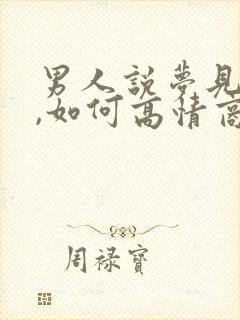 男人説夢見
,如何高情商
周禄寶